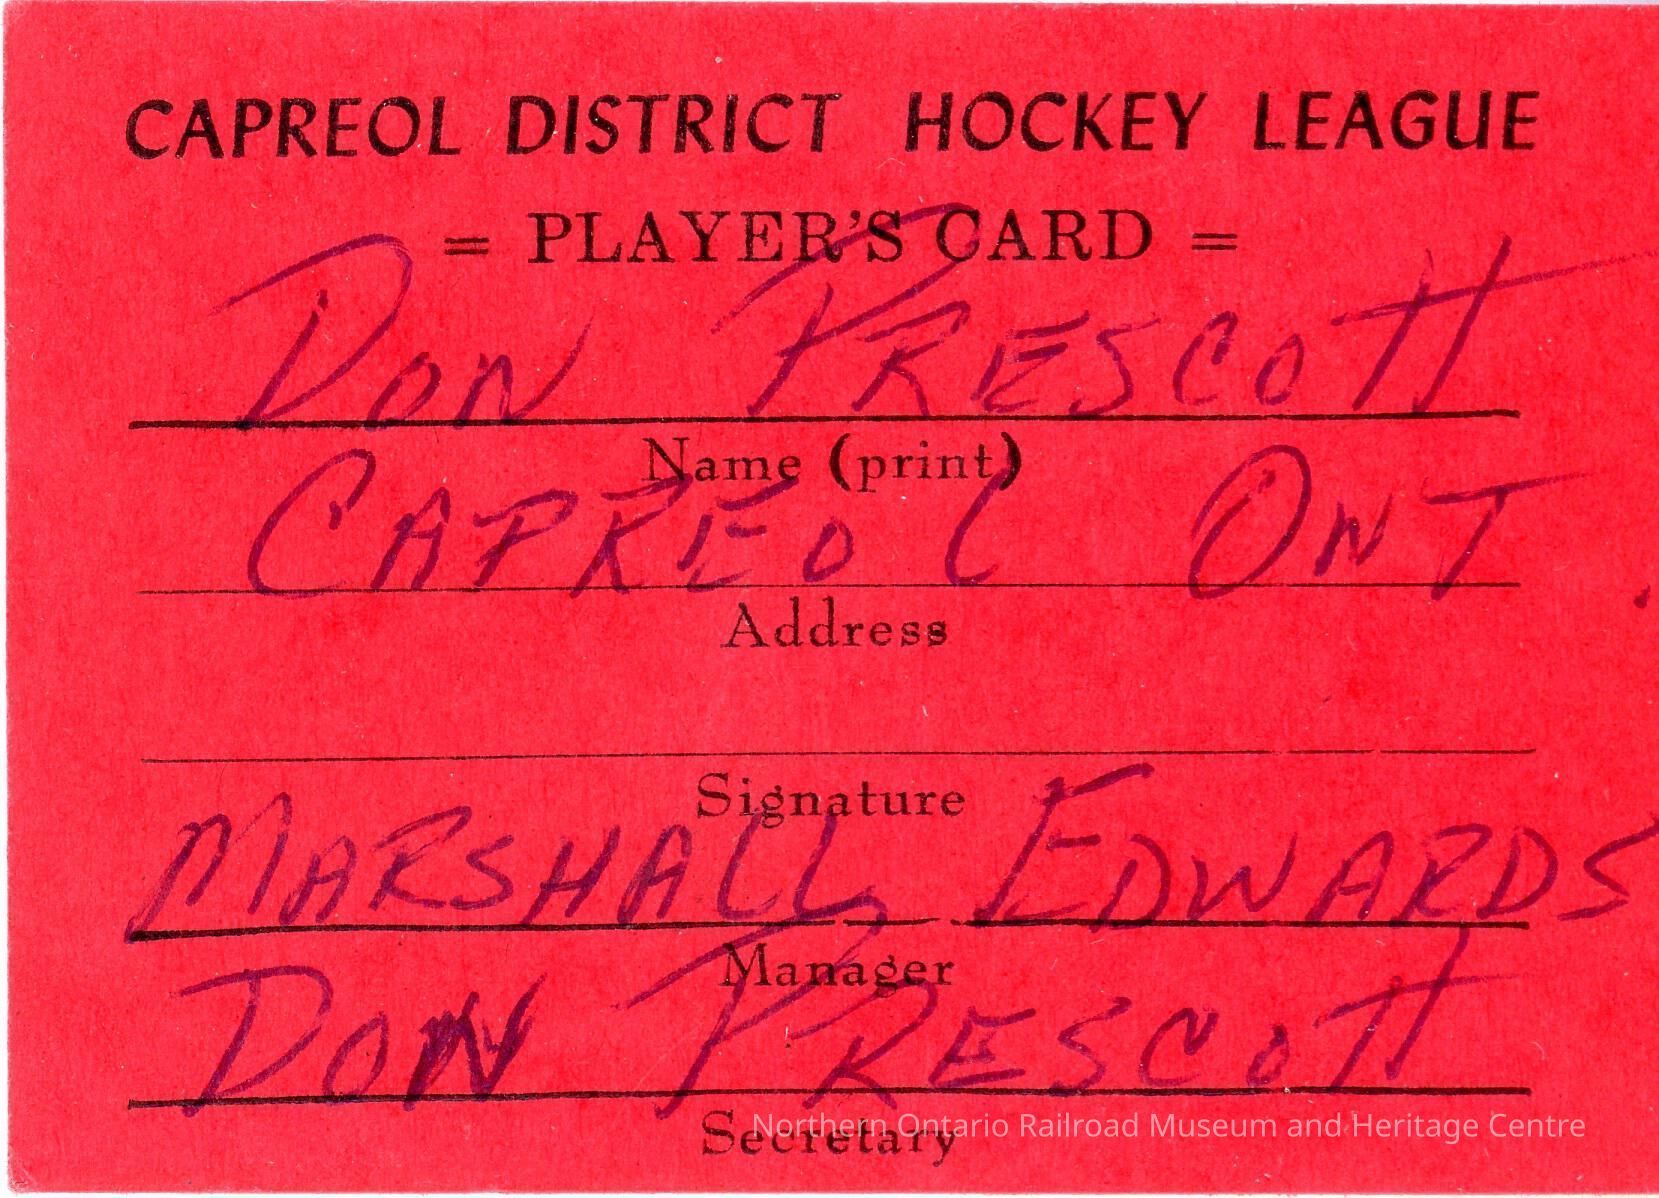 CAPREOL DISTRICT HOCKEY LEAGUE
= PLAYER'S CARD =
DON PRESCOTT
Name (print)
CAPREOL ONT.
Address
Signature
MARSHALL EDWARDS
Manager
DON PRESCOTT
Secretary
Northern Ontario Railroad Museum and Heritage Centre